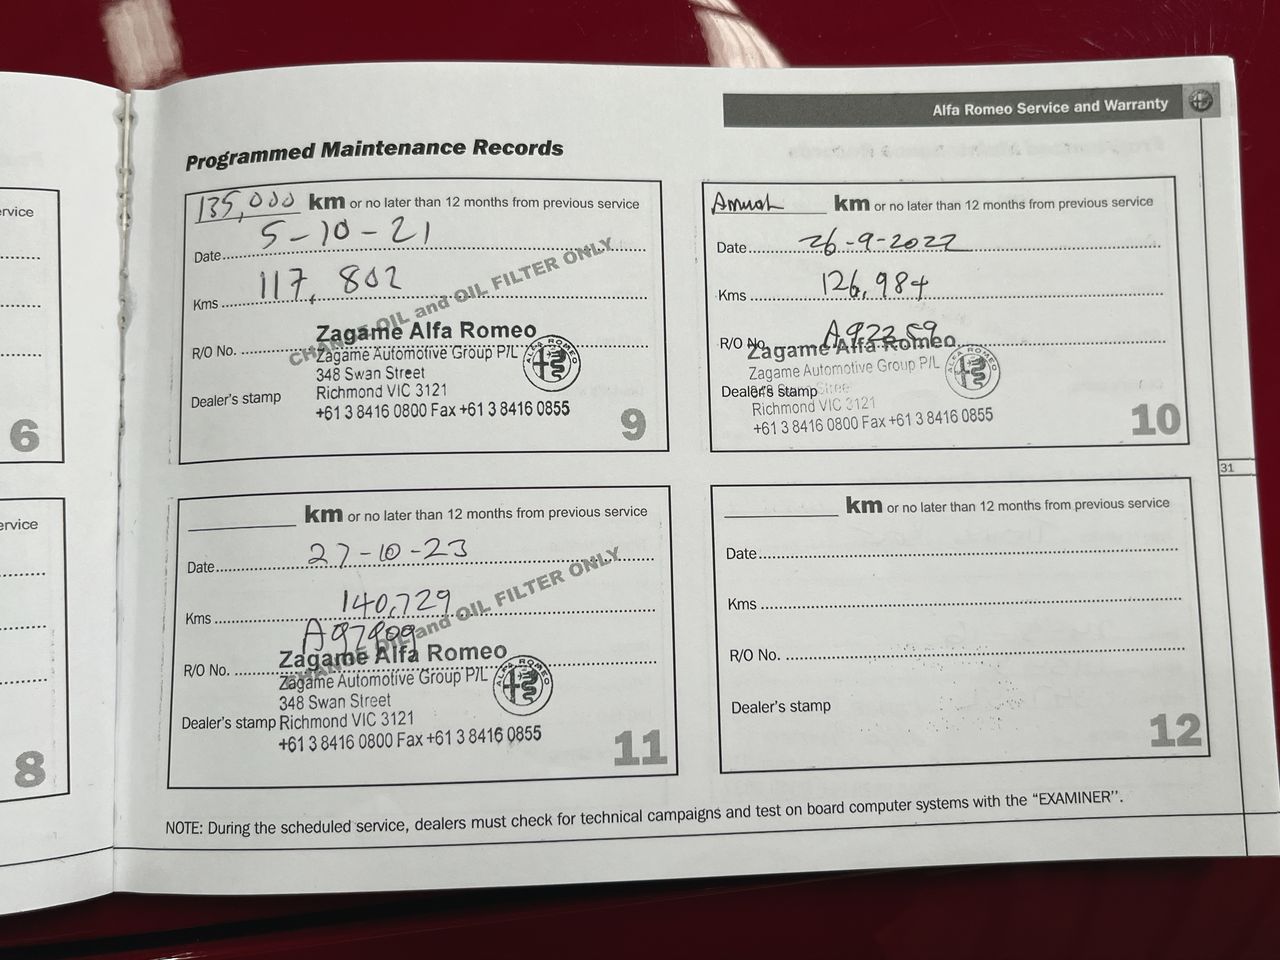 Alfa Romeo Service and Warranty
Programmed Maintenance Records
135,000 km or no later than 12 months from previous service
Date 5-10-21
Kms 117,802
CHANGE OIL and OIL FILTER ONLY
R/O No.
Zagame Alfa Romeo
Zagame Automotive Group P/L
348 Swan Street
Dealer's stamp
Richmond VIC 3121
+61 3 8416 0800 Fax +61 3 8416 0855
ALFA ROMEO
9
km or no later than 12 months from previous service
Date 26-9-2022
Kms 126,984
R/O No. A92259
Zagame Alfa Romeo
Zagame Automotive Group P/L
348 Swan Street
Dealer's stamp
Richmond VIC 3121
+61 3 8416 0800 Fax +61 3 8416 0855
ALFA ROMEO
10
km or no later than 12 months from previous service
Date 27-10-23
Kms 140,729
CHANGE OIL and OIL FILTER ONLY
R/O No. A97909
Zagame Alfa Romeo
Zagame Automotive Group P/L
348 Swan Street
Dealer's stamp Richmond VIC 3121
+61 3 8416 0800 Fax +61 3 8416 0855
ALFA ROMEO
11
km or no later than 12 months from previous service
Date
Kms
R/O No.
Dealer's stamp
12
NOTE: During the scheduled service, dealers must check for technical campaigns and test on board computer systems with the “EXAMINER”.
31
ervice
6
ervice
8